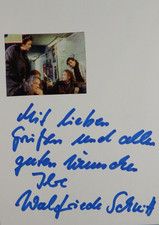 Mit lieben
Grüßen und allen
guten Wünschen
Ihre
Walfriede Schmitt